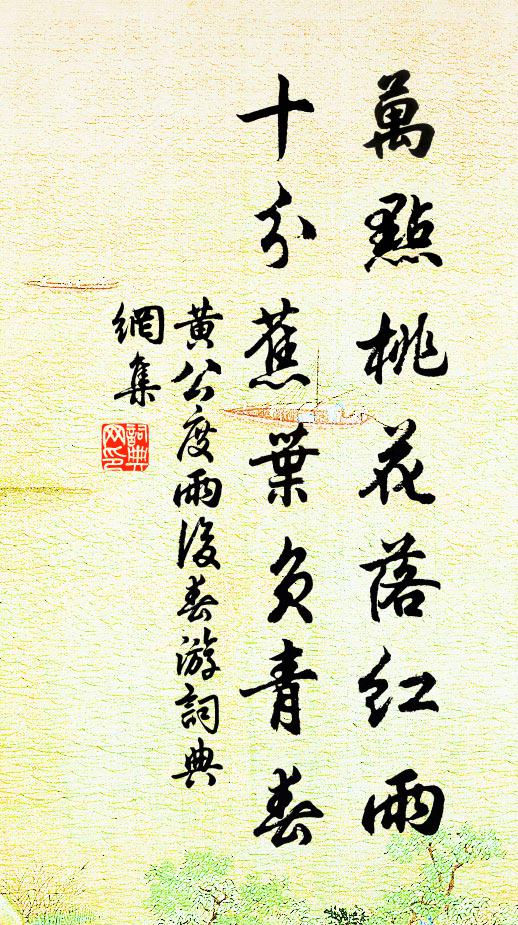 萬點桃花落紅雨
十分蕉葉負青春
黄公度雨後春游詞典
網集
詞典
网印